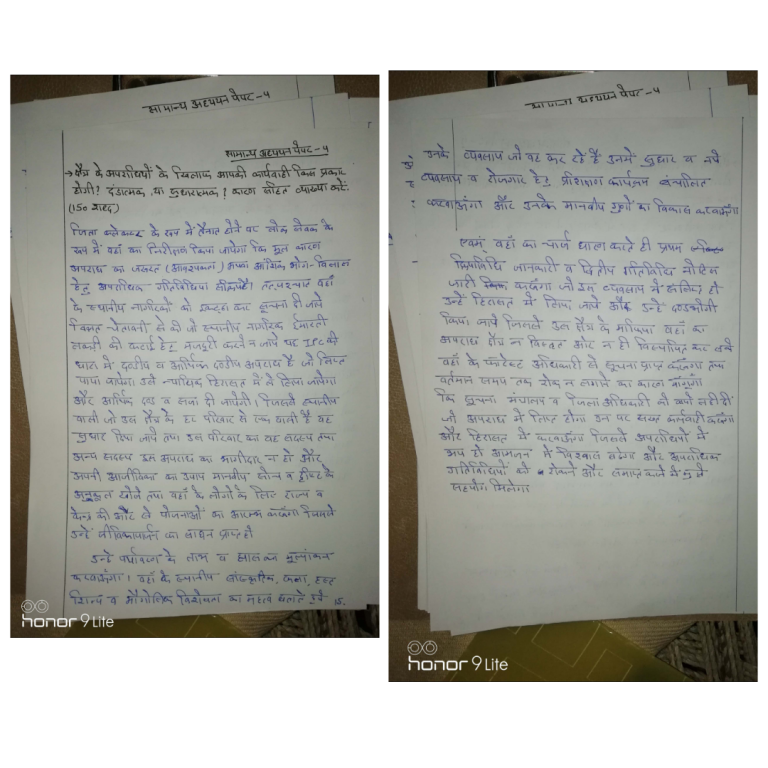 सामान्य अध्ययन पेपर-4
सामान्य अध्ययन पेपर-4
→ क्षेत्र के अपराधियों के खिलाफ आपकी कार्यवाही किस प्रकार
होगी? दंडात्मक, या सुधारात्मक? कारण सहित व्याख्या करें.
(150 शब्द)
जिला कलेक्टर के रूप में तैनात होने पर लोक सेवक के
रूप में वहाँ का निरीक्षण किया जायेगा कि मूल कारण
अपराध का जरूरत (आवश्यकता) अथवा आर्थिक भोग-विलास
हेतु अपराधिक गतिविधियां तत्पश्चात वहाँ
के स्थानीय नागरिकों को इकट्ठा कर सूचना दी जाये
चेतावनी की जो स्थानीय नागरिक ईमारती
लकड़ी की कटाई हेतु मजदूरी करने न जाये यह IPC की
धारा में दण्डनीय व आर्थिक दण्डनीय अपराध है जो लिप्त
पाया जायेगा उसे न्यायिक हिरासत में ले लिया जायेगा
और आर्थिक दण्ड व सजा दी जायेगी जिससे स्थानीय
वासी जो उस क्षेत्र के हर परिवार से एक वासी है यह
सुधार किया जाये तथा उस परिवार का वह सदस्य तथा
अन्य सदस्य इस अपराध का भागीदार न हो और
अपनी आजीविका का उपाय मानवीय सोच व दृष्टि के
अनुकूल खोजें तथा वहाँ के लोगों के लिए राज्य व
केन्द्र की ओर से योजनाओं का आरम्भ करूँगा जिससे
उन्हें जीविकोपार्जन का साधन प्राप्त हो
उन्हें पर्यावरण के लाभ व मूल्यांकन
करवाऊंगा। वहाँ के स्थानीय सांस्कृतिक, कला, हस्त
शिल्प व भौगोलिक विशेषता का महत्व बताते हुये
honor 9 Lite
सामान्य अध्ययन पेपर-4
उनके व्यवसाय जो वह कर रहे हैं उनमें सुधार व नये
व्यवसाय व रोजगार हेतु प्रशिक्षण कार्यक्रम संचालित
करवाऊंगा और उनके मानवीय गुणों का विकास करवाऊंगा
एवमं वहाँ का चार्ज धारण करते ही प्रथम
जानकारी व द्वितीय गतिविधि नोटिस
जारी करूँगा जो इस व्यवसाय में संलिप्त हो
उन्हें हिरासत में लिया जाये और उन्हें
किया जाये जिससे उस क्षेत्र के माफिया वहाँ का
अपराध क्षेत्र न और न ही विस्थापित कर सके
वहाँ के फॉरेस्ट अधिकारी से सूचना प्राप्त करूँगा तथा
वर्तमान समय तक रोक न लगाने का कारण
कि सूचना मंत्रालय व जिला अधिकारी को क्यों नहीं दी
जो अपराध में लिप्त होगा उन पर सख्त कार्रवाई करूँगा
और हिरासत में करवाऊंगा जिससे अपराधियों में
भय हो आमजन में विश्वास बढ़ेगा और अपराधिक
गतिविधियों को रोकने और समाप्त करने में मुझे
सहयोग मिलेगा
honor 9 Lite